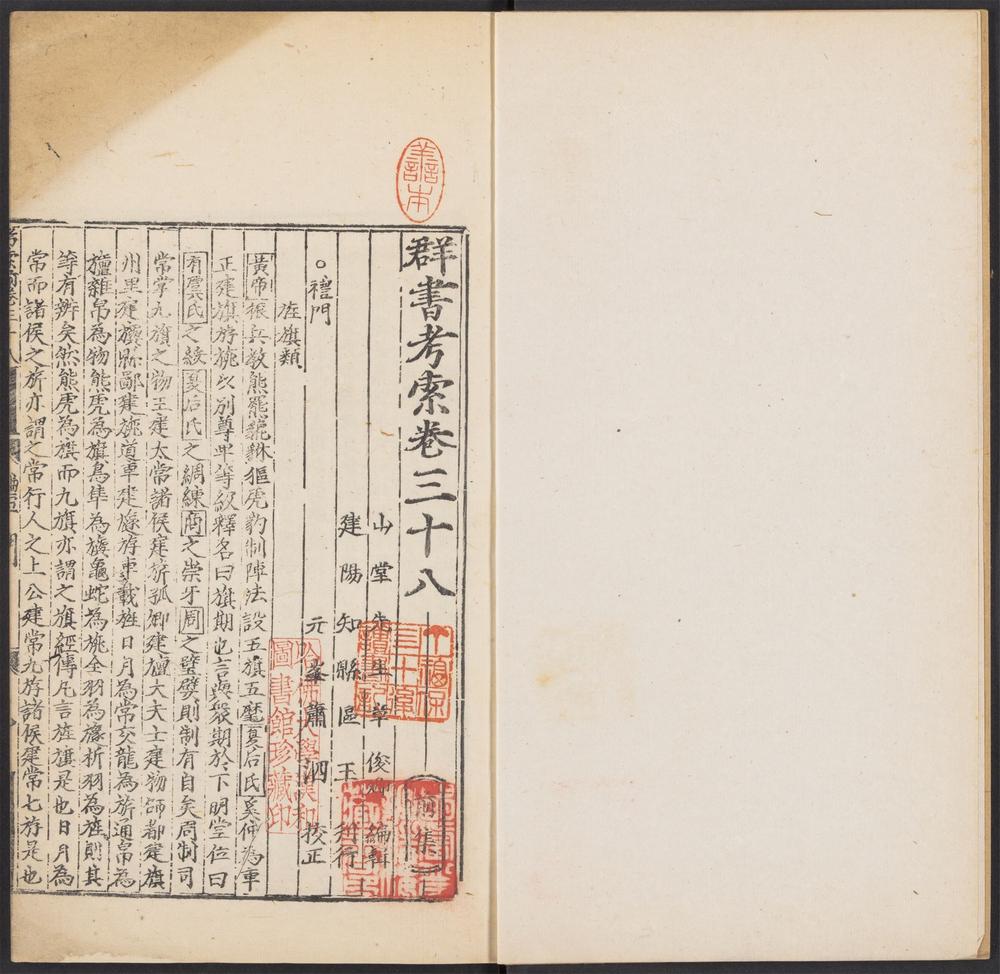 善本
群書考索卷三十八
前集
山堂先生章俊卿編輯
建陽知縣區玉刋行
元峯蕭泗校正
禮門
旌旗類
黃帝振兵教熊羆貔貅貙虎豹制陣法設五旗五麾夏后氏奚仲為車
正建旗斿旐以別尊卑等級釋名曰旗期也言與衆期於下明堂位曰
有虞氏之綏夏后氏之綢練商之崇牙周之璧翣則制有自矣周制司
常掌九旗之物王建太常諸侯建旂孤卿建旜大夫士建物師都建旗
州里建旟縣鄙建旐道車建旞斿車載旌日月為常交龍為旂通帛為
旜雜帛為物熊虎為旗鳥隼為旟龜蛇為旐全羽為旞析羽為旌則其
等有辨矣然熊虎為旗而九旗亦謂之旗經傳凡言旌旗是也日月為
常而諸侯之旂亦謂之常行人之上公建常九斿諸侯建常七斿是也
哈佛大學漢和
圖書館珍藏印